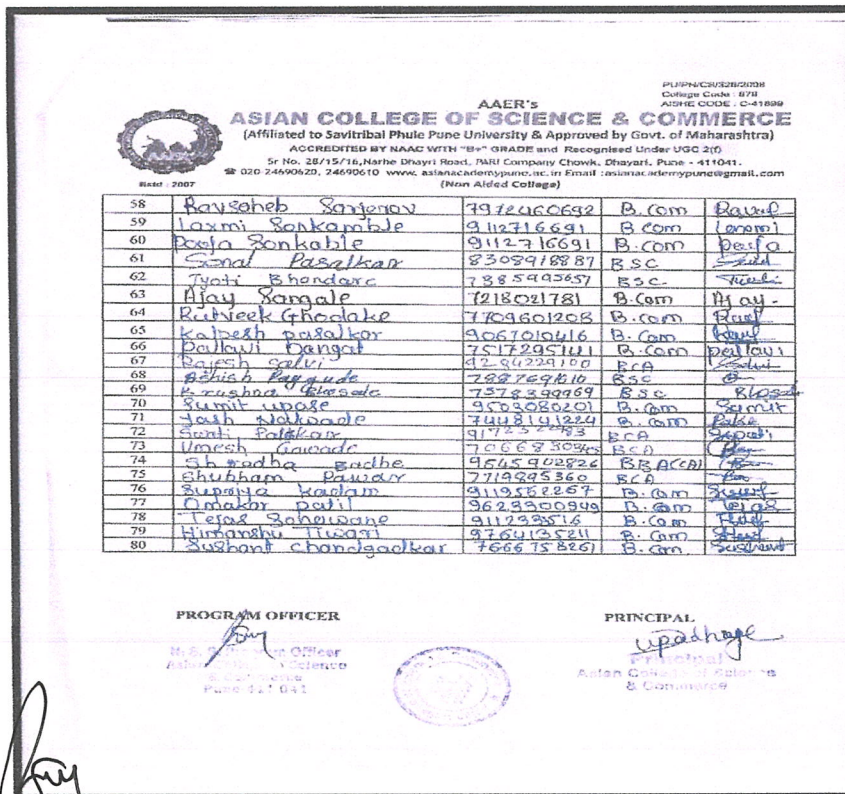 PU/PN/CS/328/2008
College Code : 878
AISHE CODE : C-41899
AAER's
ASIAN COLLEGE OF SCIENCE & COMMERCE
(Affiliated to Savitribai Phule Pune University & Approved by Govt. of Maharashtra)
ACCREDITED BY NAAC WITH "B+" GRADE and Recognised Under UGC 2(f)
Sr No. 28/15/16,Narhe Dhayri Road, PARI Company Chowk, Dhayari, Pune - 411041.
☎ 020-24690620, 24690610 www. asianacademypune.ac.in Email :asianacademypune@gmail.com
Estd : 2007 (Non Aided College)
58 Ravsaheb 7972460692 B.Com
59 Laxmi Sonkamble 9112716691 B com Laxmi
60 Pooja Sonkable 9112716691 B.com pooja
61 Sonal Pasalkar 8308918887 BSC
62 Jyoti Bhandare 7385995657 BSC.
63 Ajay Sangale 7218021781 B.com Ajay-
64 Rutveek Ghodake 7709601208 B.Com
65 Kalpesh pasalkar 9067010416 B.Com
66 Pallavi Dangat 7517295141 B.Com pallavi
67 Rajesh salvi BCA
68 Ashish BSC
69 Krushna Bhosale 7578399969 BSC Bhosale
70 Sumit upase 9503080201 B.Com Sumit
71 Yash 7448141224 B.com
72 BCA
73 Umesh Gawade BCA
74 Shradha Badhe 9545902826 BBA(CA)
75 Shubham Pawar 7719895360 BCA
76 Supriya kadam 9119562267 B.Com
77 Omakar patil 9623900949 B.Com Tejas
78 Tejas 911233516 B.Com
79 Himanshu Tiwari 9764135211 B.Com
80 Sushant Chandgadkar 7666758261 B.Com Sushant
PROGRAM OFFICER PRINCIPAL
upadhaye
N. S. S. Program Officer
Asian College of Science
& Commerce
Pune-411 041
Principal
Asian College of Science
& Commerce